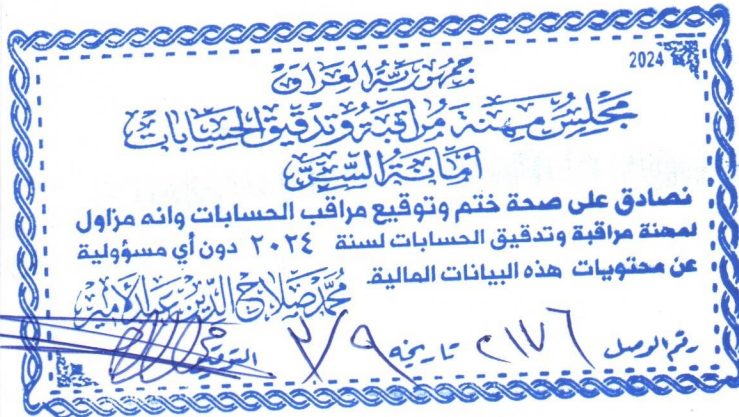 2024
جمهورية العراق
مجلس مهنة مراقبة وتدقيق الحسابات
أمانة السر
نصادق على صحة ختم وتوقيع مراقب الحسابات وانه مزاول
لمهنة مراقبة وتدقيق الحسابات لسنة ٢٠٢٤ دون أي مسؤولية
عن محتويات هذه البيانات المالية.
محمد صلاح الدين عبد الأمير
رقم الوصل ٢١٧٦ تاريخه ٣/٩ التوقيع